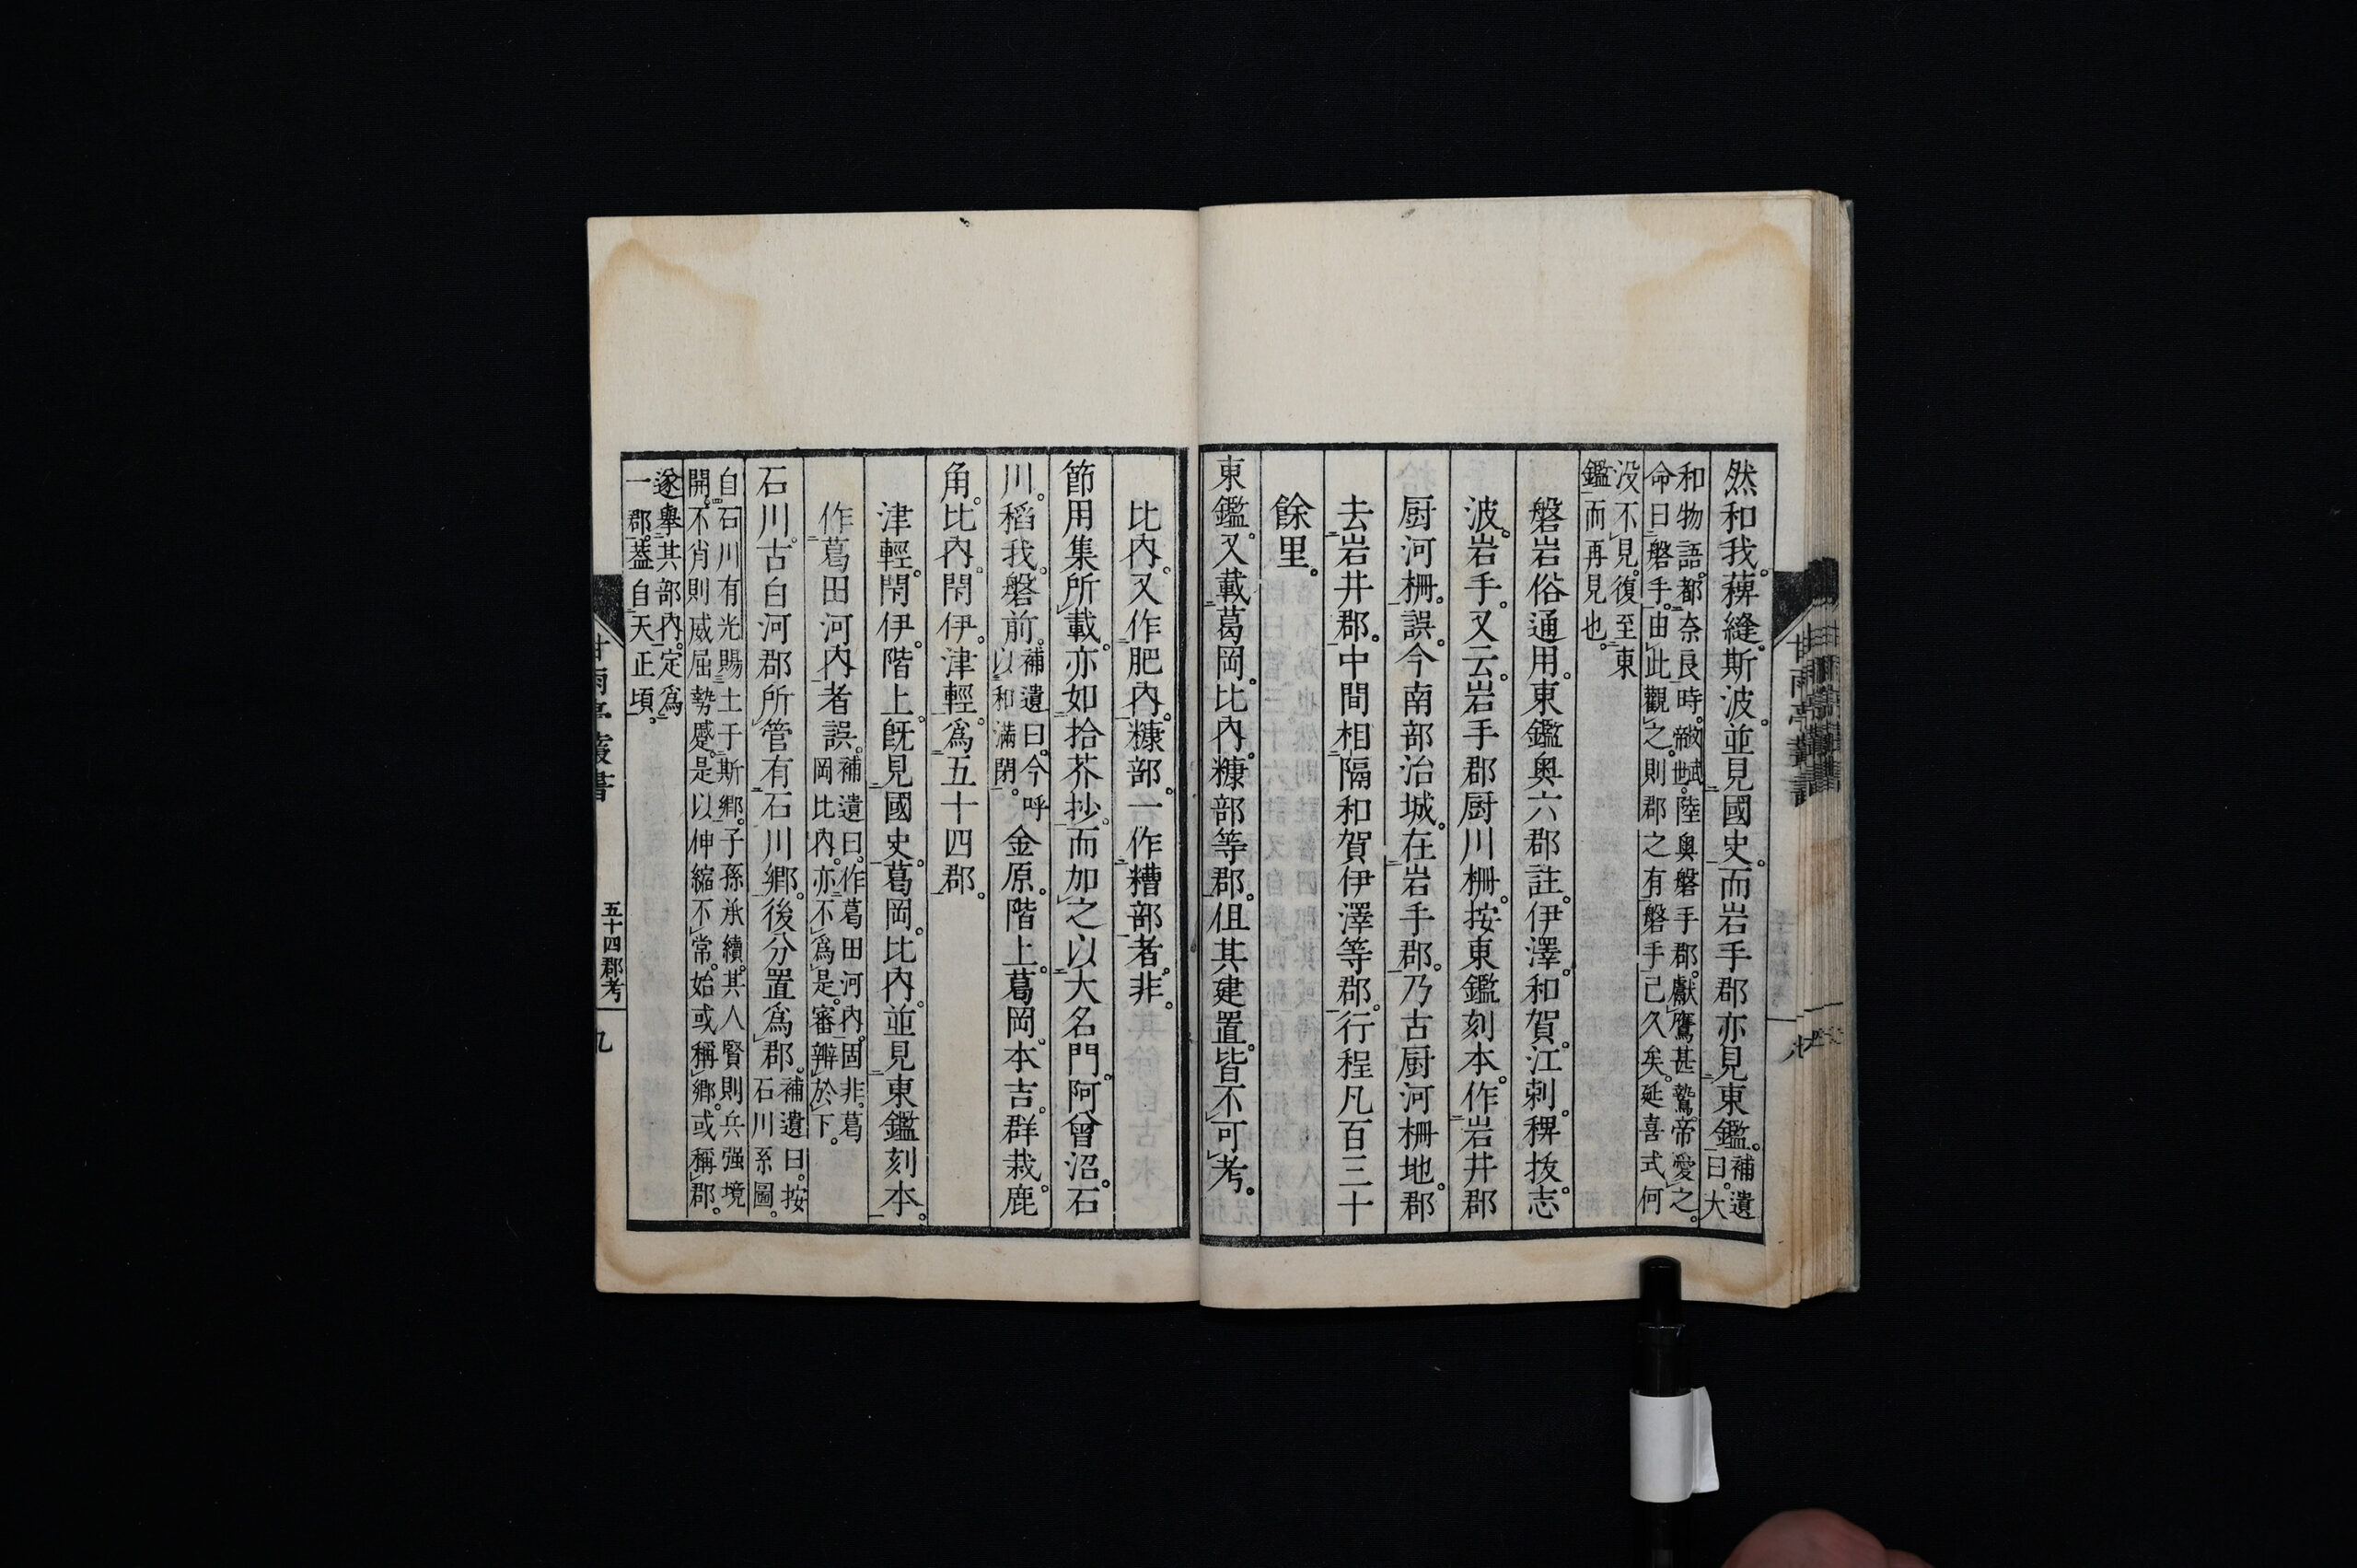 然和我。薭縫。斯波。並見國史。而岩手郡亦見東鑑。補遺
曰。大
和物語。都奈良時。帝敏獻。陸奥磐手郡。獻鷹甚鷙。帝愛之。
命曰磐手。由此觀之。則郡之有磐手已久矣。延喜式何
没不見。復至東
鑑而再見也。
磐岩俗通用。東鑑奥六郡註。伊澤。和賀。江刺。稗抜。志
波。岩手。又云。岩手郡厨川柵。按東鑑刻本。作岩井郡
厨河柵。誤。今南部治城。在岩手郡。乃古厨河柵地。郡
去岩井郡。中間相隔和賀伊澤等郡。行程凡百三十
餘里。
東鑑。又載葛岡。比内。糠部等郡。但其建置。皆不可考。
比内。又作肥内。糠部。一作糟部者。非。
節用集所載。亦如拾芥抄。而加之以大名門。阿曾沼。石
川。稻我。磐前。補遺曰。今呼
以和滿閉。金原。階上。葛岡。本吉。群栽。鹿
角。比内。閇伊。津輕。爲五十四郡。
津輕。閇伊。階上。既見國史。葛岡。比内。並見東鑑刻本。
作葛田河内者誤。補遺曰。作葛田河内。固非。葛
岡比内。亦不爲是。審辯於下。
石川。古白河郡所管有石川郷。後分置爲郡。補遺曰。按
石川系圖。
自石川有光賜土于斯郷。子孫承續。其人賢則兵强境
開。不肖則威屈勢蹙。是以伸縮不常。始或稱郷。或稱郡。
遂擧其部内。定爲
一郡。蓋自天正頃。
甘雨亭叢書
五十四郡考
九